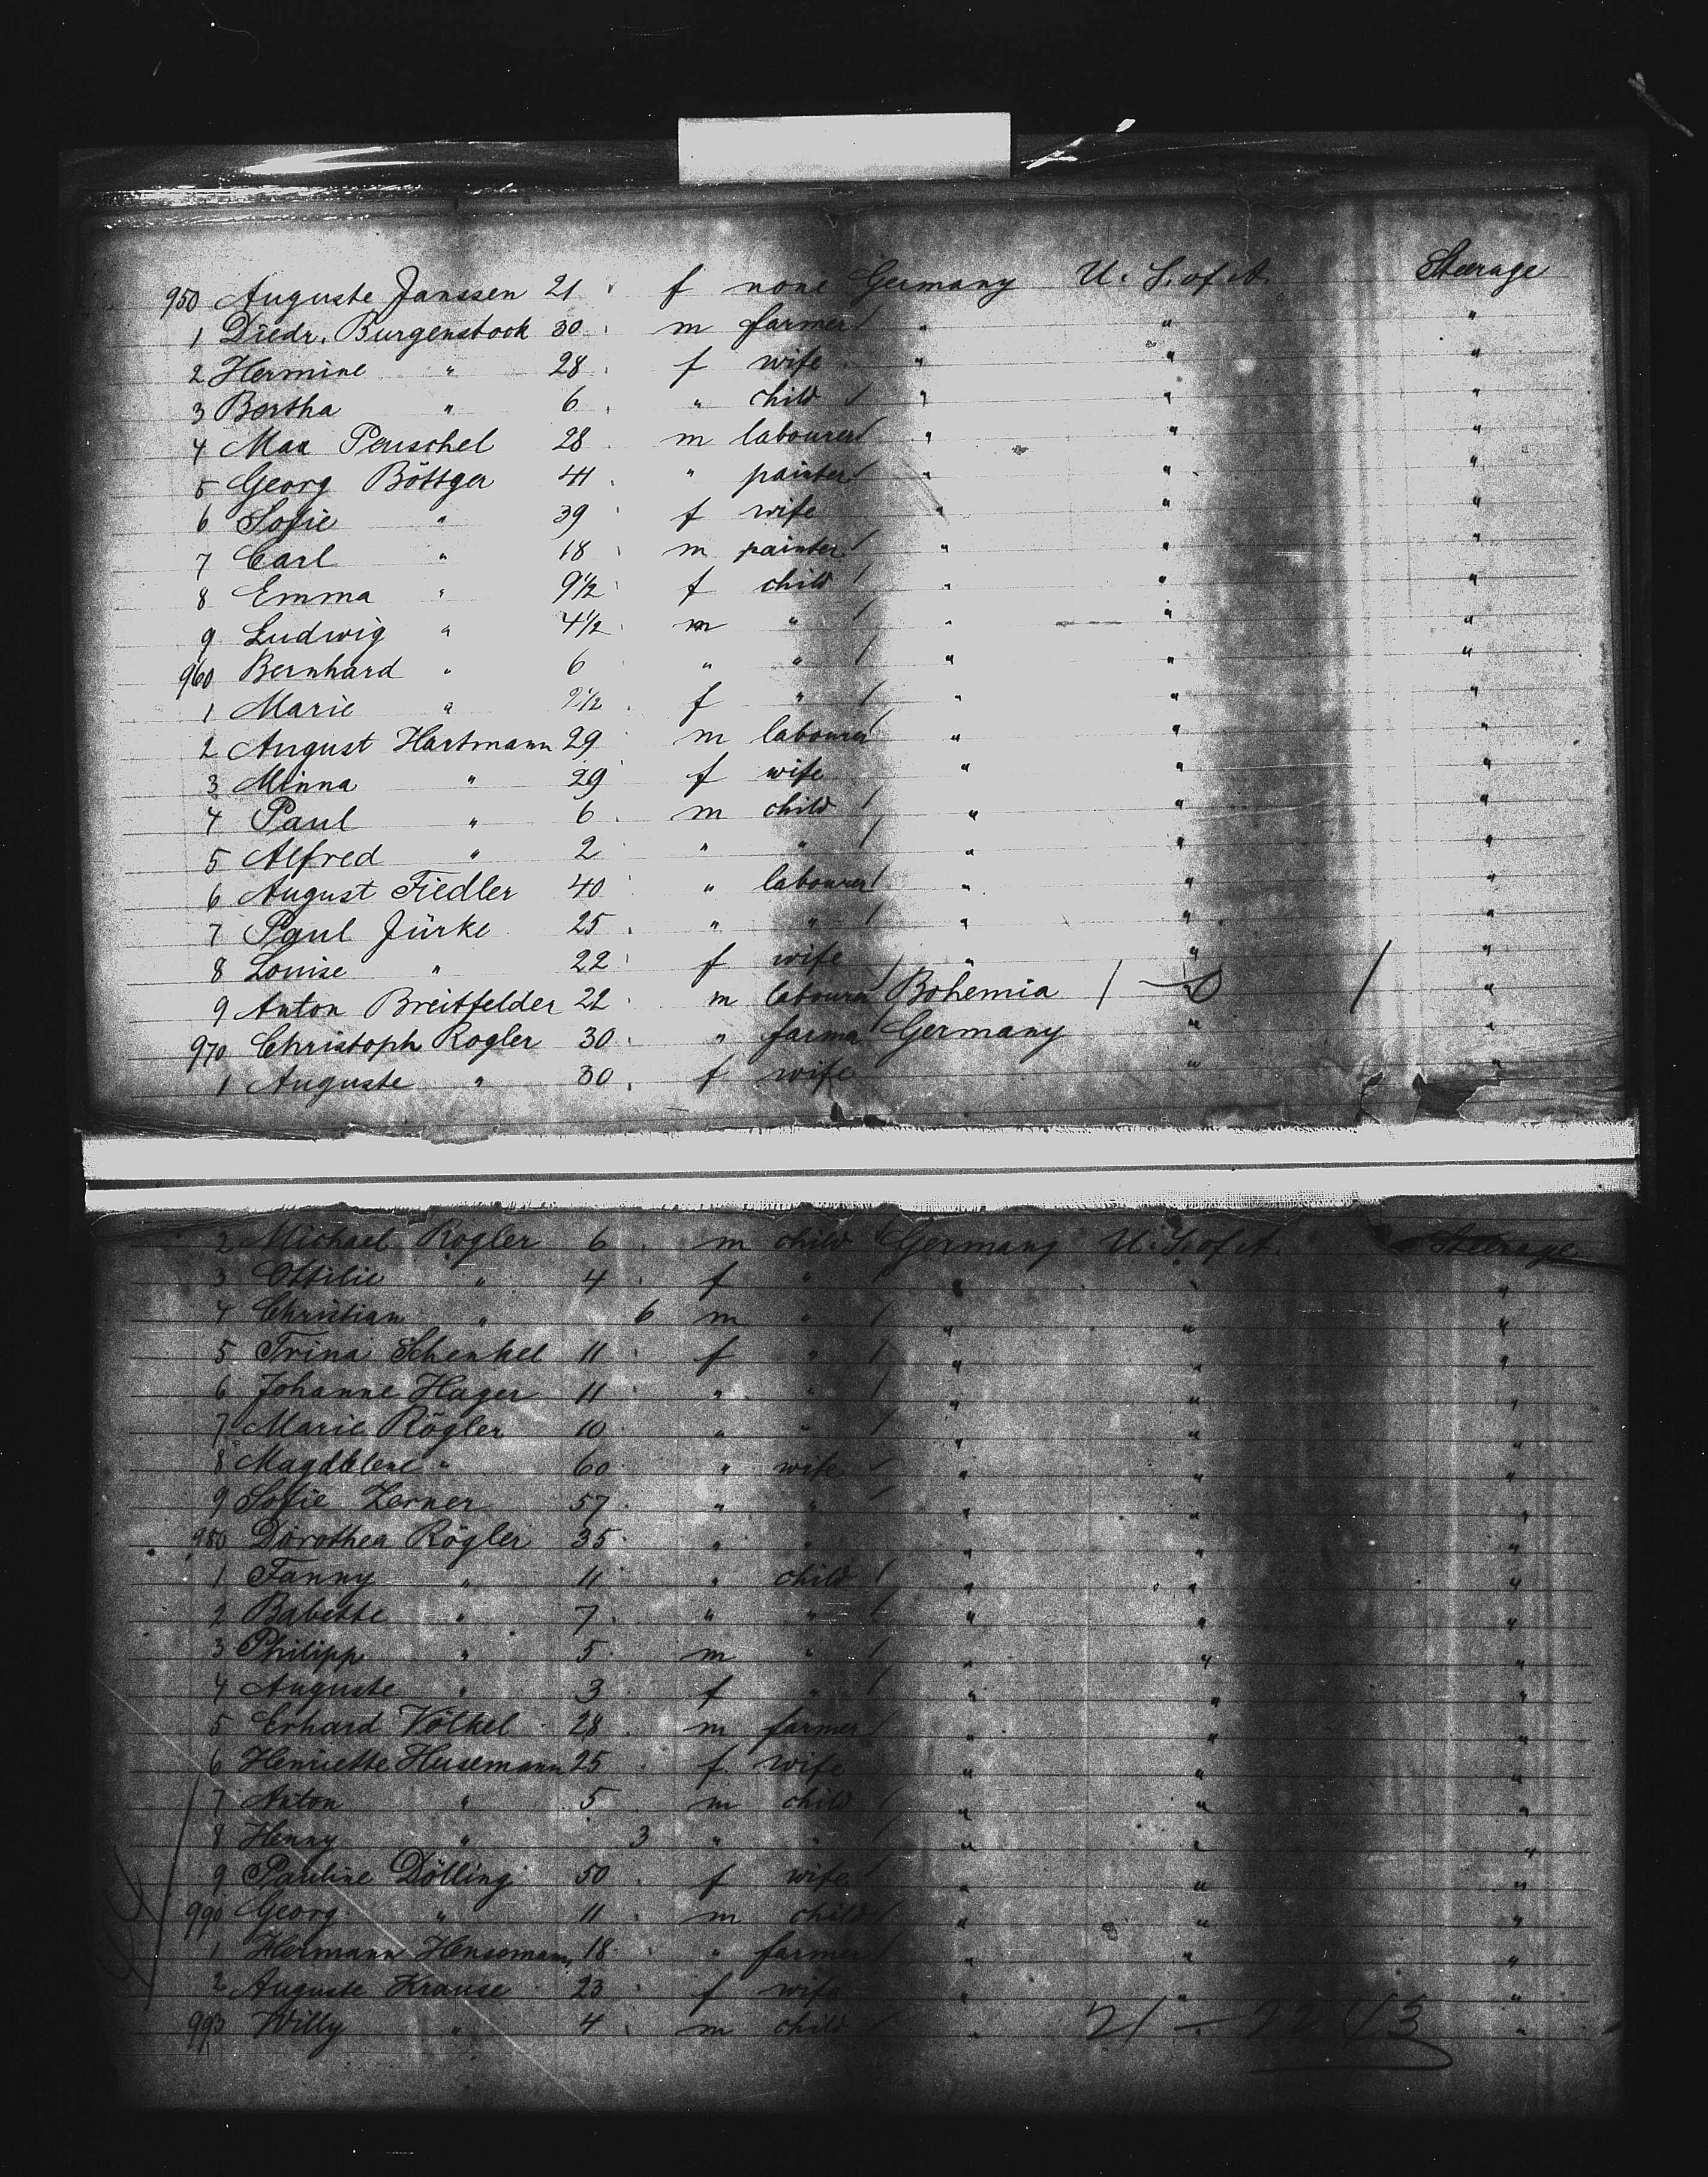 950 Auguste Janssen 21 f none Germany U. S. of A. Steerage
1 Diedr. Burgenstock 30 m farmer " " "
2 Hermine " 28 f wife " " "
3 Bertha " 6 " child " " "
4 Max Peuschel 28 m labourer " " "
5 Georg Böttger 41 " painter " " "
6 Sofie " 39 f wife " " "
7 Carl " 18 m painter " " "
8 Emma " 9 1/2 f child " " "
9 Ludwig " 4 1/2 m " " " "
960 Bernhard " 6 " " " " "
1 Marie " f " " " "
2 August Hartmann 29 m labourer " " "
3 Minna " 29 f wife " " "
4 Paul " 6 m child " " "
5 Alfred " 2 " " " " "
6 August Fiedler 40 " labourer " " "
7 Paul Jürke 25 " " " " "
8 Louise " 22 f wife " " "
9 Anton Breitfelder 22 m labourer Bohemia "
970 Christoph Rogler 30 " farmer Germany " "
1 Auguste " 30 f wife " "
2 Michael Rogler 6 m child Germany U. S. of A. Steerage
3 Ottilie " 4 f " " " "
4 Christian " 6 m " " " "
5 Trina Schenkel 11 f " " " "
6 Johanne Hager 11 " " " " "
7 Marie Rögler 10 " " " " "
8 Magdalene " 60 " wife " " "
9 Sofie Zerner 57 " " " " "
980 Dorothea Rögler 35 " " " " "
1 Fanny " 11 " child " " "
2 Babette " 7 " " " " "
3 Philipp " 5 m " " " "
4 Auguste " 3 f " " " "
5 Erhard Völkel 28 m farmer " " "
6 Henriette Husemann 25 f wife " " "
7 Anton " 5 m child " " "
8 Henny " 3 " " " " "
9 Pauline Dölling 50 f wife " " "
990 Georg " 11 m child " " "
1 Hermann 18 " farmer " " "
2 Auguste Krause 23 f wife " " "
993 Willy " 4 m child " "